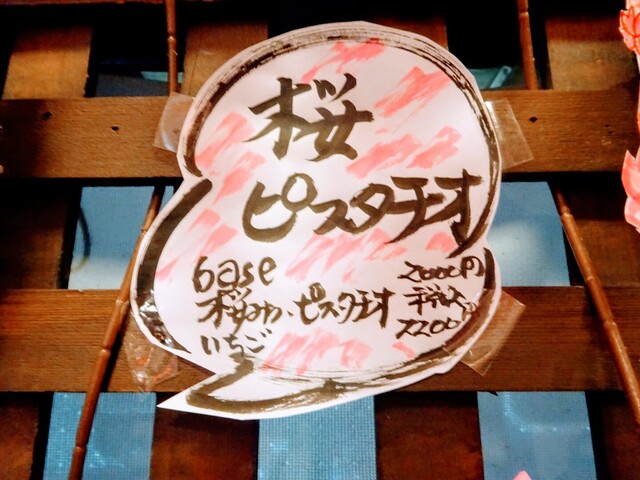 桜
ピスタチオ
base
桜みか・ピスタチオ
いちご
2000円
税込
2200円